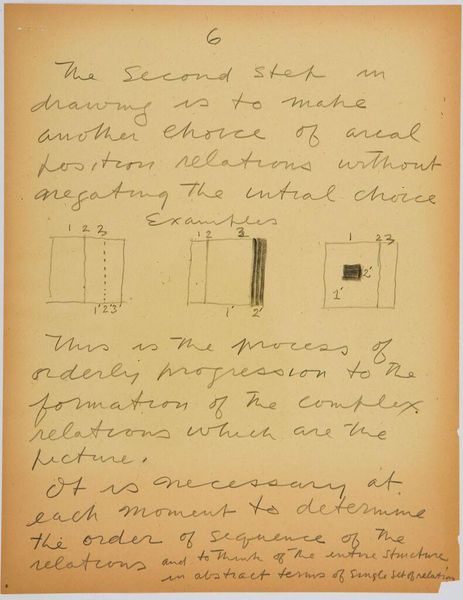 6
The Second Step in
drawing is to make
another choice of areal
position relations without
negating the intial choice
Examples
1 2 3
1' 2' 3'
1 2 3
1' 2'
1 2 3
2'
1'
This is the process of
orderly progression to the
formation of the complex
relations which are the
picture.
It is necessary at
each moment to determine
the order of sequence of the
relations and to think of the entire structure
in abstract terms of single set of relation